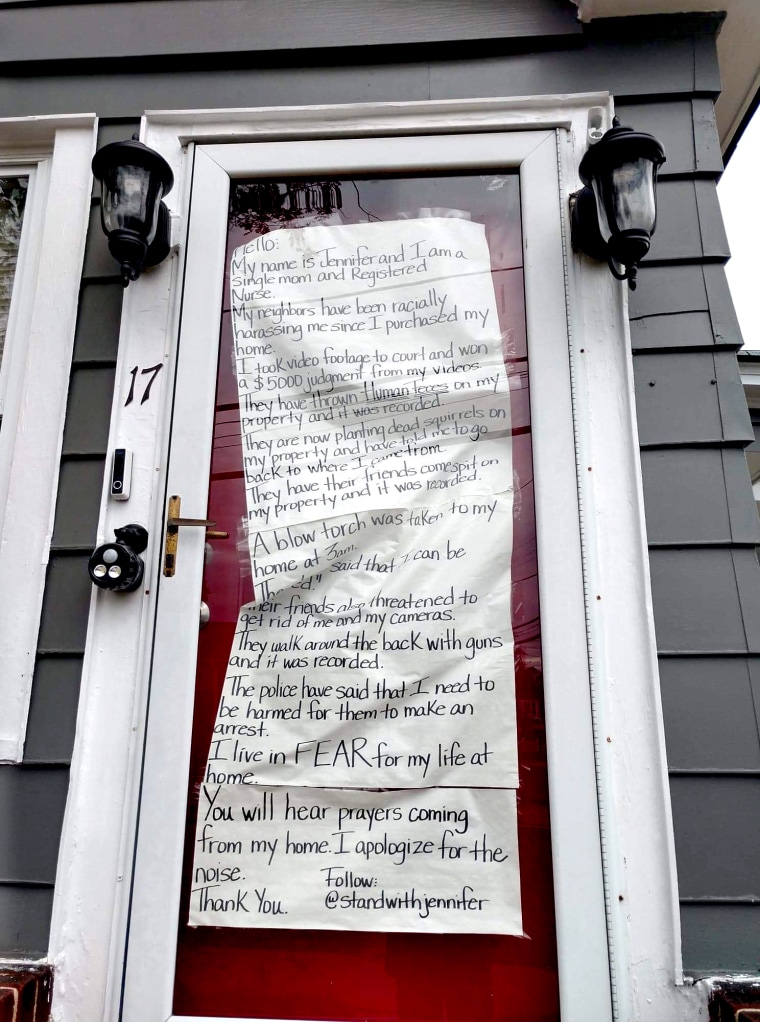 17
Hello:
My name is Jennifer and I am a
single mom and Registered
Nurse.
My neighbors have been racially
harassing me since I purchased my
home.
I took video footage to court and won
a $5000 judgment from my videos.
They have thrown Human feces on my
property and it was recorded.
They are now planting dead squirrels on
my property and have told me to go
back to where I came from.
They have their friends come spit on
my property and it was recorded.
A blow torch was taken to my
home at 3am.
said that I can be
Their friends also threatened to
get rid of me and my cameras.
They walk around the back with guns
and it was recorded.
The police have said that I need to
be harmed for them to make an
arrest.
I live in FEAR for my life at
home.
You will hear prayers coming
from my home. I apologize for the
noise.
Thank You.
Follow:
@standwithjennifer